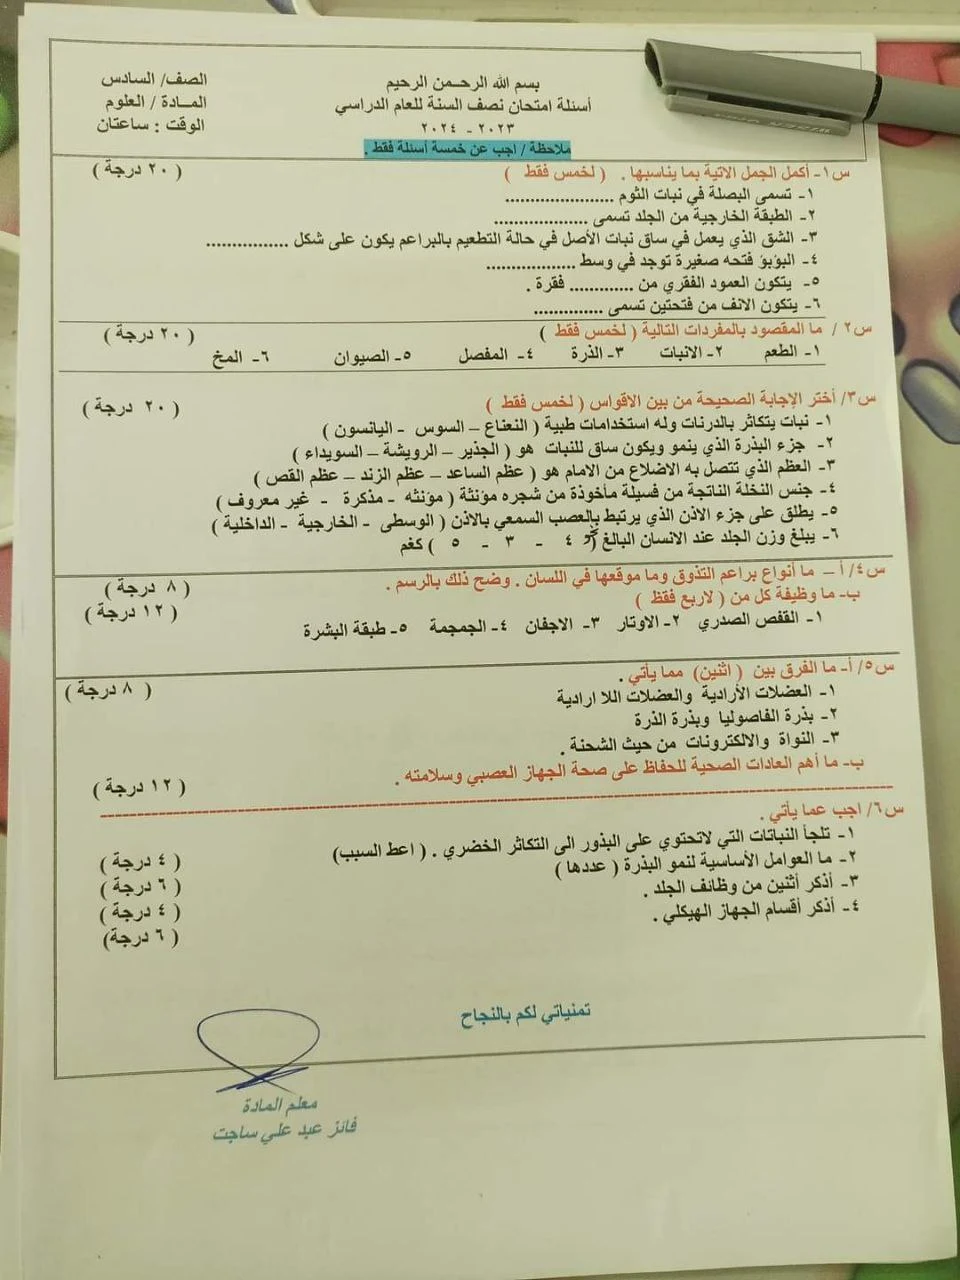 بسم الله الرحـمن الرحيم
أسئلة امتحان نصف السنة للعام الدراسي
٢٠٢٣ - ٢٠٢٤
ملاحظة / اجب عن خمسة أسئلة فقط .
الصف/ السادس
المـادة / العلوم
الوقت : ساعتان
س١- أكمل الجمل الاتية بما يناسبها . ( لخمس فقط ) ( ٢٠ درجة )
١- تسمى البصلة في نبات الثوم ......................
٢- الطبقة الخارجية من الجلد تسمى ...................
٣- الشق الذي يعمل في ساق نبات الأصل في حالة التطعيم بالبراعم يكون على شكل .................
٤- البؤبؤ فتحه صغيرة توجد في وسط ..................
٥- يتكون العمود الفقري من ............. فقرة .
٦- يتكون الانف من فتحتين تسمى ..............
س٢ / ما المقصود بالمفردات التالية ( لخمس فقط ) ( ٢٠ درجة )
١- الطعم ٢- الانبات ٣- الذرة ٤- المفصل ٥- الصيوان ٦- المخ
س٣/ أختر الإجابة الصحيحة من بين الاقواس ( لخمس فقط ) ( ٢٠ درجة )
١- نبات يتكاثر بالدرنات وله استخدامات طبية ( النعناع – السوس - اليانسون )
٢- جزء البذرة الذي ينمو ويكون ساق للنبات هو ( الجذير – الرويشة – السويداء )
٣- العظم الذي تتصل به الاضلاع من الامام هو ( عظم الساعد – عظم الزند – عظم القص )
٤- جنس النخلة الناتجة من فسيلة مأخوذة من شجره مؤنثة ( مؤنثه - مذكرة - غير معروف )
٥- يطلق على جزء الاذن الذي يرتبط بالعصب السمعي بالاذن ( الوسطى - الخارجية - الداخلية )
٦- يبلغ وزن الجلد عند الانسان البالغ ( ٤ - ٣ - ٥ ) كغم
س٤/ أ – ما أنواع براعم التذوق وما موقعها في اللسان . وضح ذلك بالرسم . ( ٨ درجة )
ب- ما وظيفة كل من ( لاربع فقط ) ( ١٢ درجة )
١- القفص الصدري ٢- الاوتار ٣- الاجفان ٤- الجمجمة ٥- طبقة البشرة
س٥/ أ- ما الفرق بين ( اثنين) مما يأتي . ( ٨ درجة )
١- العضلات الأرادية والعضلات اللا ارادية
٢- بذرة الفاصوليا وبذرة الذرة
٣- النواة والالكترونات من حيث الشحنة .
ب- ما أهم العادات الصحية للحفاظ على صحة الجهاز العصبي وسلامته . ( ١٢ درجة )
س٦/ اجب عما يأتي .
١- تلجأ النباتات التي لاتحتوي على البذور الى التكاثر الخضري . ( اعط السبب) ( ٤ درجة )
٢- ما العوامل الأساسية لنمو البذرة ( عددها ) ( ٦ درجة )
٣- أذكر أثنين من وظائف الجلد . ( ٤ درجة )
٤- أذكر أقسام الجهاز الهيكلي . ( ٦ درجة)
تمنياتي لكم بالنجاح
معلم المادة
فائز عبد علي ساجت